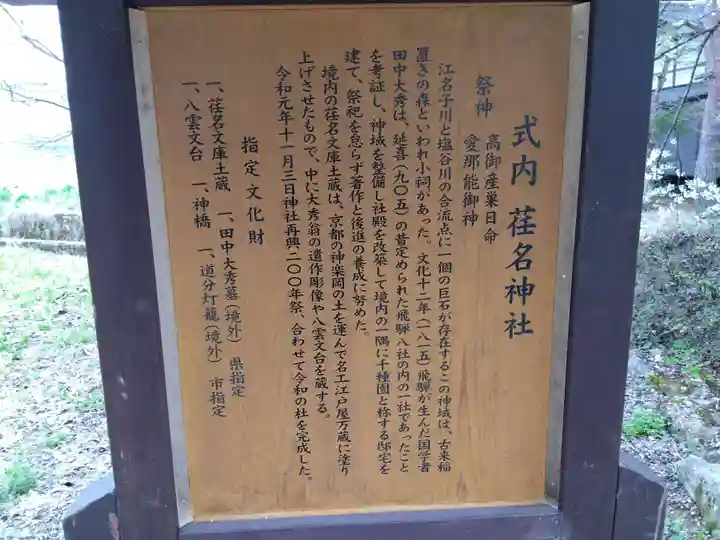 式内 荏名神社
祭神 高御産巣日命
愛那能御神
江名子川と塩谷川の合流点に一個の巨石が存在するこの神域は、古来稲
置きの森といわれ小祠があった。文化十二年(一八一五)飛騨が生んだ国学者
田中大秀は、延喜(九〇五)の昔定められた飛騨八社の内の一社であったこと
を考証し、神域を整備し社殿を改築して境内の一隅に千種園と称する邸宅を
建て、祭祀を怠らず著作と後進の養成に努めた。
境内の荏名文庫土蔵は、京都の神楽岡の土を運んで名工江戸屋万蔵に塗り
上げさせたもので、中に大秀翁の遺作彫像や八雲文台を蔵する。
令和元年十一月三日神社再興二〇〇年祭、合わせて令和の社を完成した。
指定文化財
一、荏名文庫土蔵 一、田中大秀墓(境外) 県指定
一、八雲文台 一、神橋 一、道分灯籠(境外) 市指定